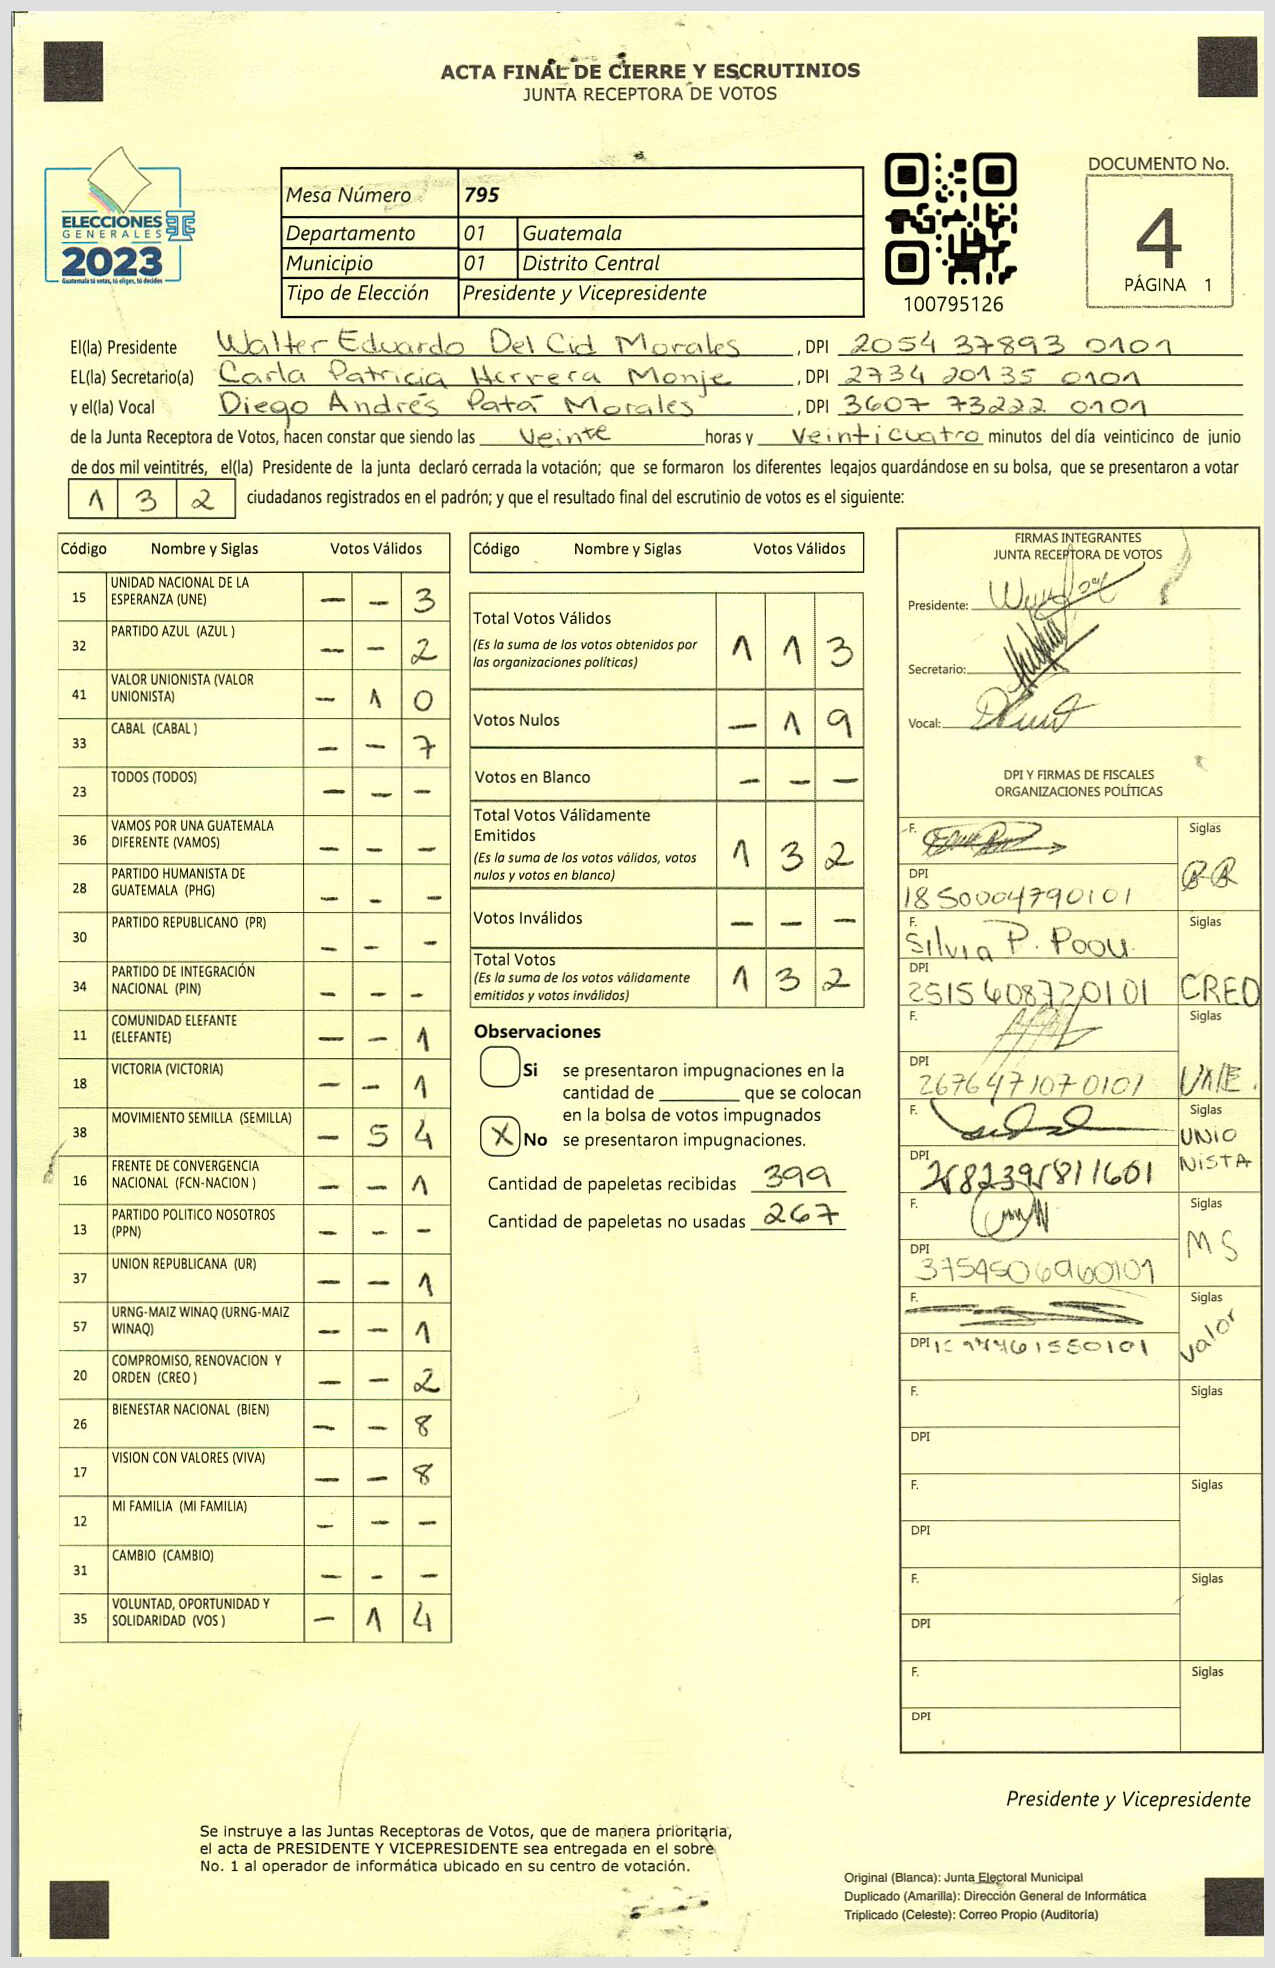 ACTA FINAL DE CIERRE Y ESCRUTINIOS
JUNTA RECEPTORA DE VOTOS
ELECCIONES
GENERALES
2023
Guatemala tú votas, tú eliges, tú decides
Mesa Número 795
Departamento 01 Guatemala
Municipio 01 Distrito Central
Tipo de Elección Presidente y Vicepresidente
100795126
DOCUMENTO No.
4
PÁGINA 1
El(la) Presidente Walter Eduardo Del Cid Morales, DPI 2054 37893 0101
EL(la) Secretario(a) Carla Patricia Herrera Monje, DPI 2734 20135 0101
y el(la) Vocal Diego Andrés Patá Morales, DPI 3607 73222 0101
de la Junta Receptora de Votos, hacen constar que siendo las Veinte horas y Veinticuatro minutos del día veinticinco de junio
de dos mil veintitrés, el(la) Presidente de la junta declaró cerrada la votación; que se formaron los diferentes legajos guardándose en su bolsa, que se presentaron a votar
1 3 2 ciudadanos registrados en el padrón; y que el resultado final del escrutinio de votos es el siguiente:
Código Nombre y Siglas Votos Válidos
15 UNIDAD NACIONAL DE LA ESPERANZA (UNE) - - 3
32 PARTIDO AZUL (AZUL ) - - 2
41 VALOR UNIONISTA (VALOR UNIONISTA) - 1 0
33 CABAL (CABAL ) - - 7
23 TODOS (TODOS) - - -
36 VAMOS POR UNA GUATEMALA DIFERENTE (VAMOS) - - -
28 PARTIDO HUMANISTA DE GUATEMALA (PHG) - - -
30 PARTIDO REPUBLICANO (PR) - - -
34 PARTIDO DE INTEGRACIÓN NACIONAL (PIN) - - -
11 COMUNIDAD ELEFANTE (ELEFANTE) - - 1
18 VICTORIA (VICTORIA) - - 1
38 MOVIMIENTO SEMILLA (SEMILLA) - 5 4
16 FRENTE DE CONVERGENCIA NACIONAL (FCN-NACION ) - - 1
13 PARTIDO POLITICO NOSOTROS (PPN) - - -
37 UNION REPUBLICANA (UR) - - 1
57 URNG-MAIZ WINAQ (URNG-MAIZ WINAQ) - - 1
20 COMPROMISO, RENOVACION Y ORDEN (CREO ) - - 2
26 BIENESTAR NACIONAL (BIEN) - - 8
17 VISION CON VALORES (VIVA) - - 8
12 MI FAMILIA (MI FAMILIA) - - -
31 CAMBIO (CAMBIO) - - -
35 VOLUNTAD, OPORTUNIDAD Y SOLIDARIDAD (VOS ) - 1 4
Código Nombre y Siglas Votos Válidos
Total Votos Válidos 1 1 3
(Es la suma de los votos obtenidos por
las organizaciones políticas)
Votos Nulos - 1 9
Votos en Blanco - - -
Total Votos Válidamente
Emitidos 1 3 2
(Es la suma de los votos válidos, votos
nulos y votos en blanco)
Votos Inválidos - - -
Total Votos 1 3 2
(Es la suma de los votos válidamente
emitidos y votos inválidos)
Observaciones
Si se presentaron impugnaciones en la
cantidad de ________ que se colocan
en la bolsa de votos impugnados
X No se presentaron impugnaciones.
Cantidad de papeletas recibidas 399
Cantidad de papeletas no usadas 267
FIRMAS INTEGRANTES
JUNTA RECEPTORA DE VOTOS
Presidente:
Secretario:
Vocal:
DPI Y FIRMAS DE FISCALES
ORGANIZACIONES POLÍTICAS
F. Siglas
DPI
1850004790101
F. Silvia P. Poou Siglas
DPI
2515608720101 CREO
F. Siglas
DPI
2676471070101 UNE.
F. Siglas
UNIO
NISTA
DPI
2582395811601
F. Siglas
MS
DPI
3754506960101
F. Siglas
Valor
DPI
F. Siglas
DPI
F. Siglas
DPI
F. Siglas
DPI
F. Siglas
DPI
Presidente y Vicepresidente
Se instruye a las Juntas Receptoras de Votos, que de manera prioritaria,
el acta de PRESIDENTE Y VICEPRESIDENTE sea entregada en el sobre
No. 1 al operador de informática ubicado en su centro de votación.
Original (Blanca): Junta Electoral Municipal
Duplicado (Amarilla): Dirección General de Informática
Triplicado (Celeste): Correo Propio (Auditoría)